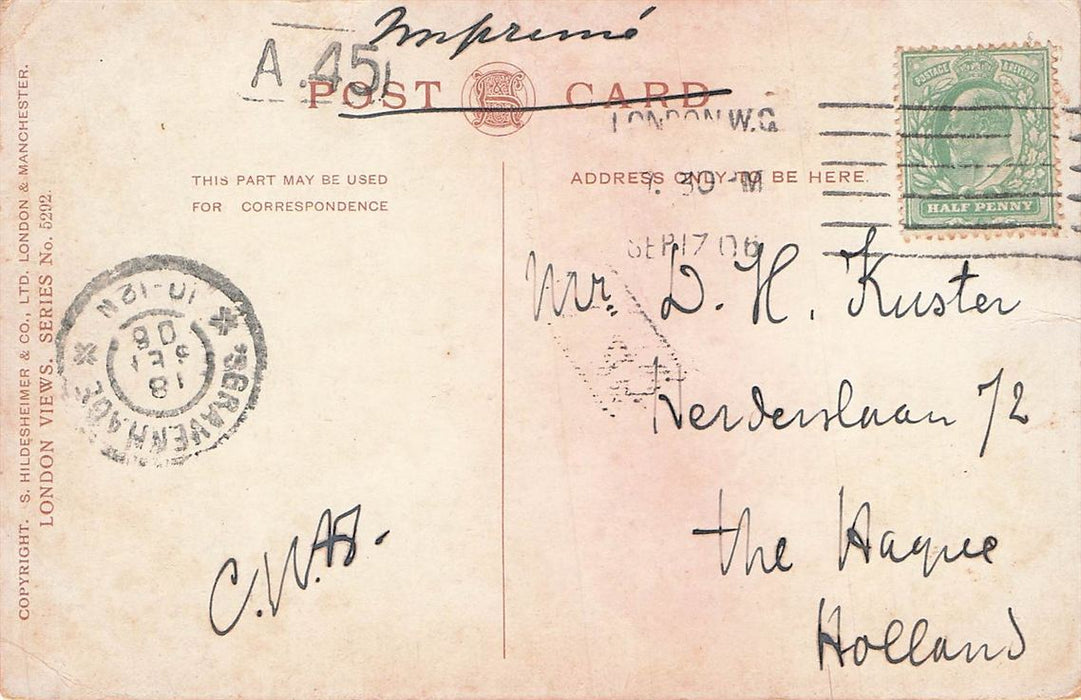 Imprimé
A.45
POST CARD
LONDON W.C
7.30 M
SEP 17 06
HALF PENNY
POSTAGE & REVENUE
THIS PART MAY BE USED
FOR CORRESPONDENCE
ADDRESS ONLY TO BE HERE.
'S GRAVENHAGE
10-12N
18
SEP
06
Mr. D. H. Kuster
72
the Hague
Holland
COPYRIGHT. S. HILDESHEIMER & CO., LTD. LONDON & MANCHESTER.
LONDON VIEWS. SERIES No. 5292.